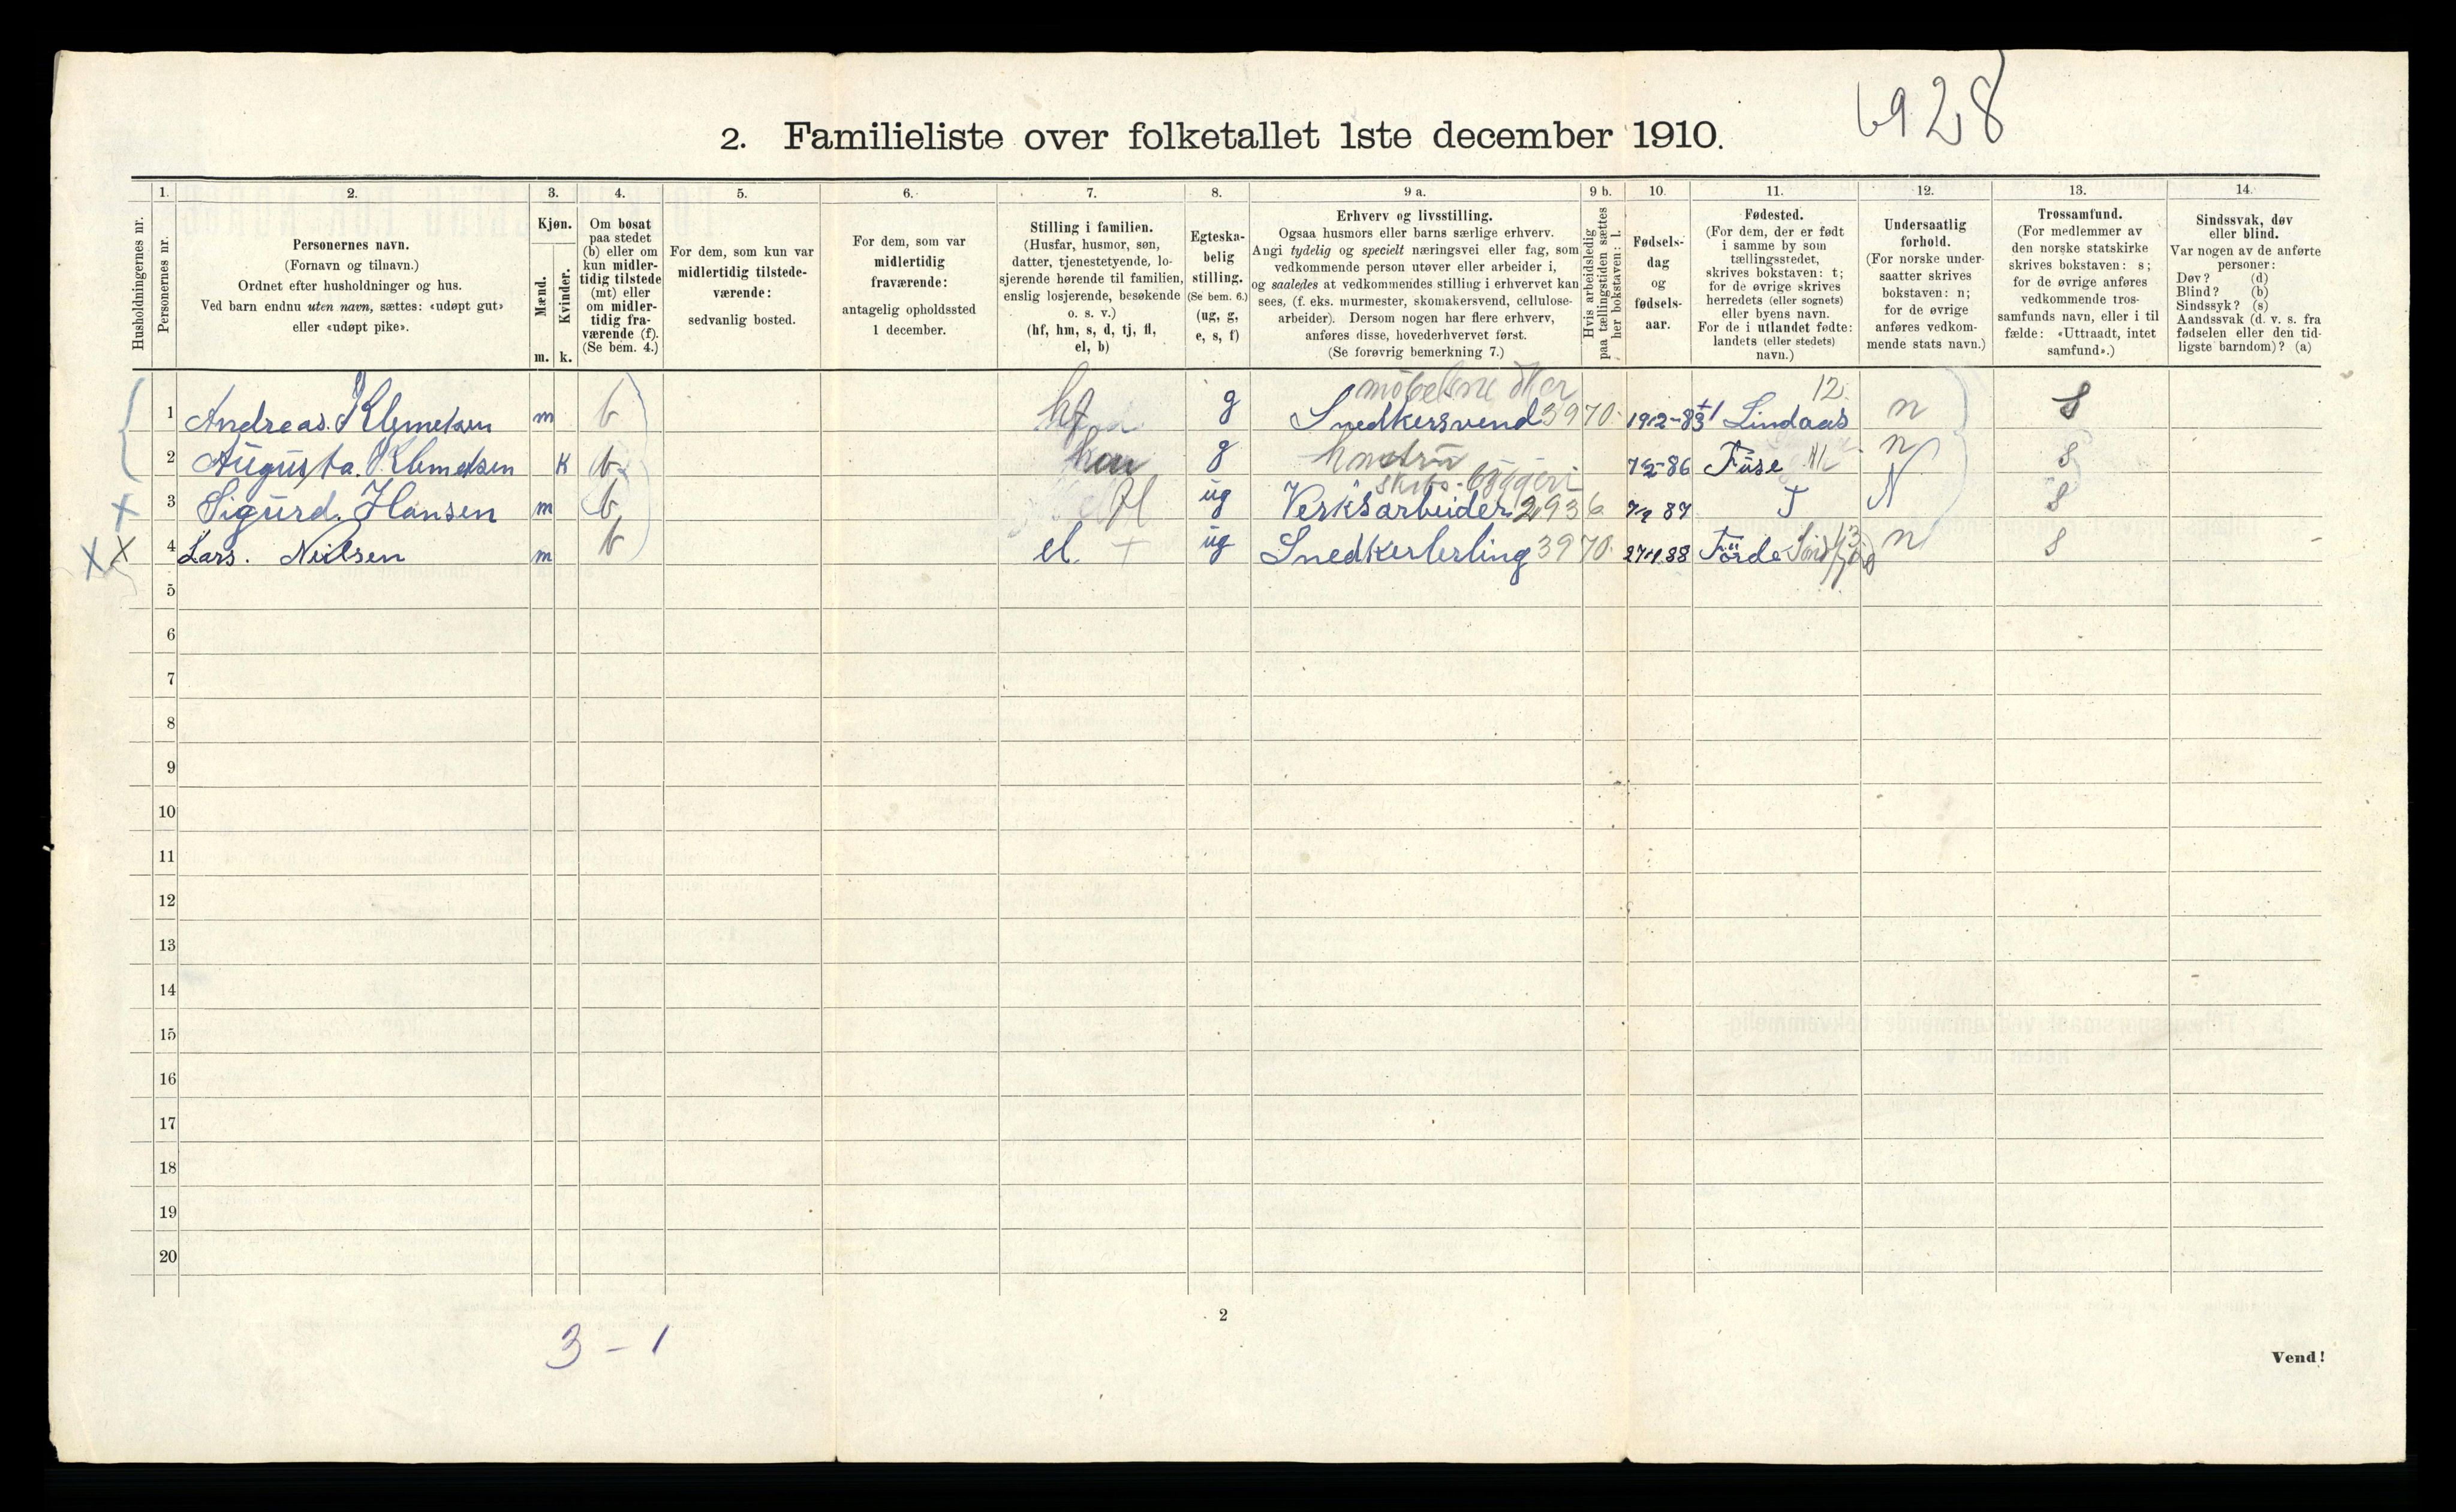 6928
2. Familieliste over folketallet 1ste december 1910.
1. 2. 3. 4. 5. 6. 7. 8. 9 a. 9 b. 10. 11. 12. 13. 14.
Husholdningernes nr.
Personernes nr.
Personernes navn.
(Fornavn og tilnavn.)
Ordnet efter husholdninger og hus.
Ved barn endnu uten navn, sættes: «udøpt gut»
eller «udøpt pike».
Kjøn.
Mænd.
Kvinder.
m. k.
Om bosat
paa stedet
(b) eller om
kun midler-
tidig tilstede
(mt) eller
om midler-
tidig fra-
værende (f).
(Se bem. 4.)
For dem, som kun var
midlertidig tilstede-
værende:
sedvanlig bosted.
For dem, som var
midlertidig
fraværende:
antagelig opholdssted
1 december.
Stilling i familien.
(Husfar, husmor, søn,
datter, tjenestetyende, lo-
sjerende hørende til familien,
enslig losjerende, besøkende
o. s. v.)
(hf, hm, s, d, tj, fl,
el, b)
Egteska-
belig
stilling.
(Se bem. 6.)
(ug, g,
e, s, f)
Erhverv og livsstilling.
Ogsaa husmors eller barns særlige erhverv.
Angi tydelig og specielt næringsvei eller fag, som
vedkommende person utøver eller arbeider i,
og saaledes at vedkommendes stilling i erhvervet kan
sees, (f. eks. murmester, skomakersvend, cellulose-
arbeider). Dersom nogen har flere erhverv,
anføres disse, hovederhvervet først.
(Se forøvrig bemerkning 7.)
Hvis arbeidsledig
paa tællingstiden sættes
her bokstaven: l.
Fødsels-
dag
og
fødsels-
aar.
Fødested.
(For dem, der er født
i samme by som
tællingsstedet,
skrives bokstaven: t;
for de øvrige skrives
herredets (eller sognets)
eller byens navn.
For de i utlandet fødte:
landets (eller stedets)
navn.)
Undersaatlig
forhold.
(For norske under-
saatter skrives
bokstaven: n;
for de øvrige
anføres vedkom-
mende stats navn.)
Trossamfund.
(For medlemmer av
den norske statskirke
skrives bokstaven: s;
for de øvrige anføres
vedkommende tros-
samfunds navn, eller i til
fælde: «Uttraadt, intet
samfund».)
Sindssvak, døv
eller blind.
Var nogen av de anførte
personer:
Døv? (d)
Blind? (b)
Sindssyk? (s)
Aandssvak (d. v. s. fra
fødselen eller den tid-
ligste barndom)? (a)
12.
1 Andreas. Klemetsen m b hf g Snedkersvend 3970. Lindaas n s
2 Augusta. Klemetsen K b g hustru 7/2-86 Fuse n s
skibs-byggeri
3 Sigurd. Hansen m b fl ug Verksarbeider 2936. T N s
4 Lars. Nielsen m b el + ug Snedkerlerling 3970. Förde n s
5
6
7
8
9
10
11
12
13
14
15
16
17
18
19
20
2
3 - 1
Vend!